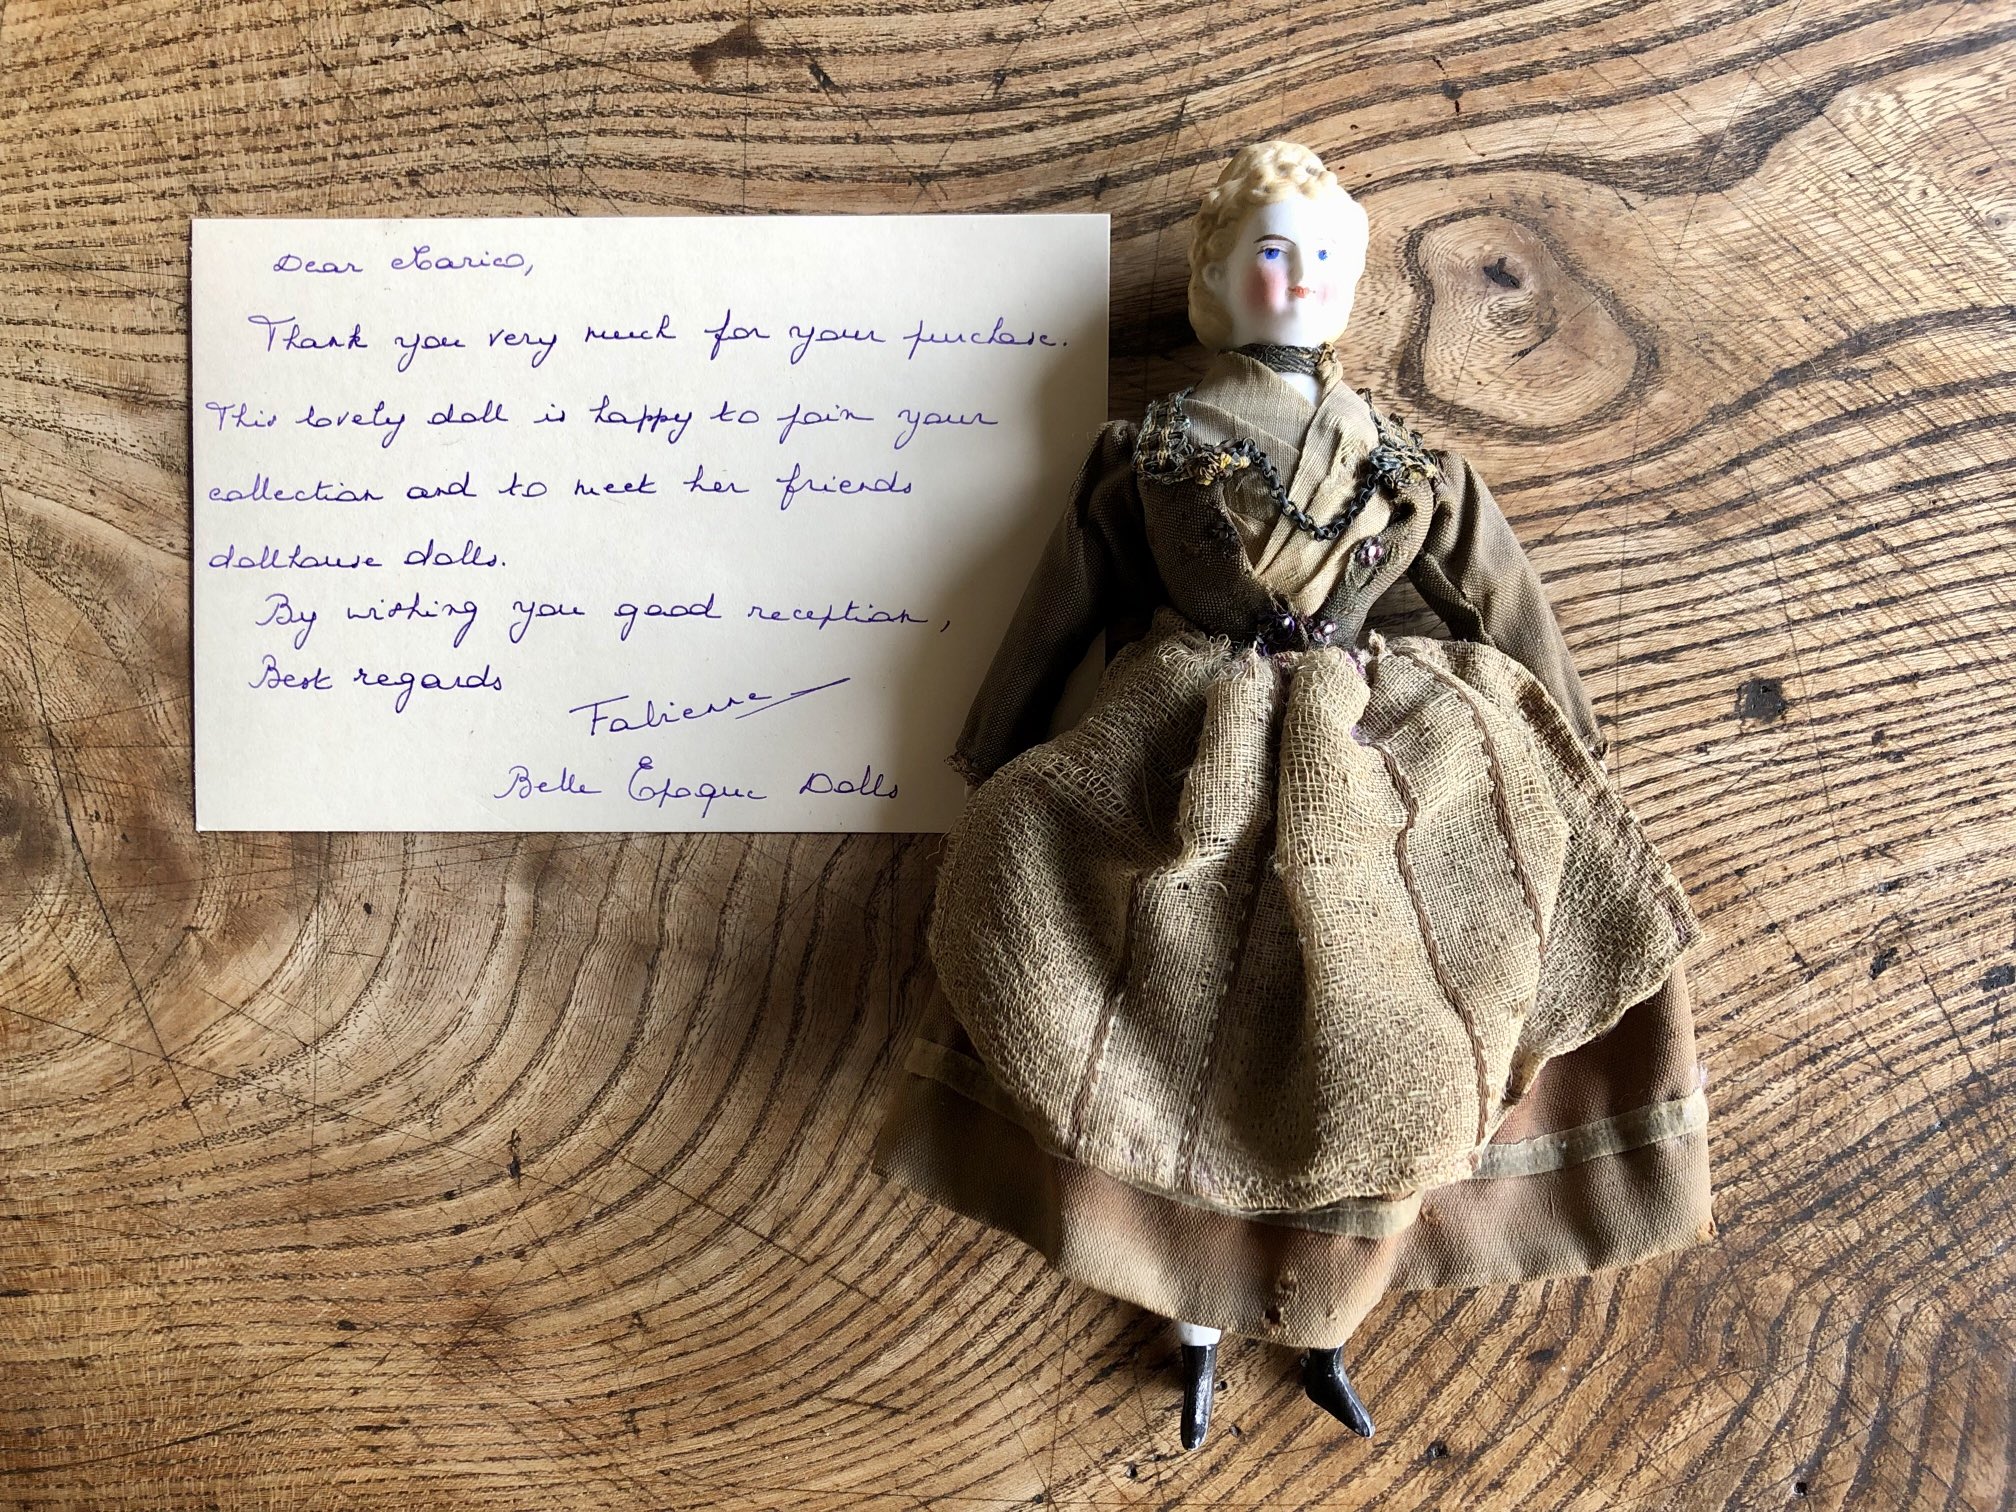 Dear Marico,
Thank you very much for your purchase.
This lovely doll is happy to join your
collection and to meet her friends
dollhouse dolls.
By wishing you good reception,
Best regards
Fabienne
Belle Epoque Dolls